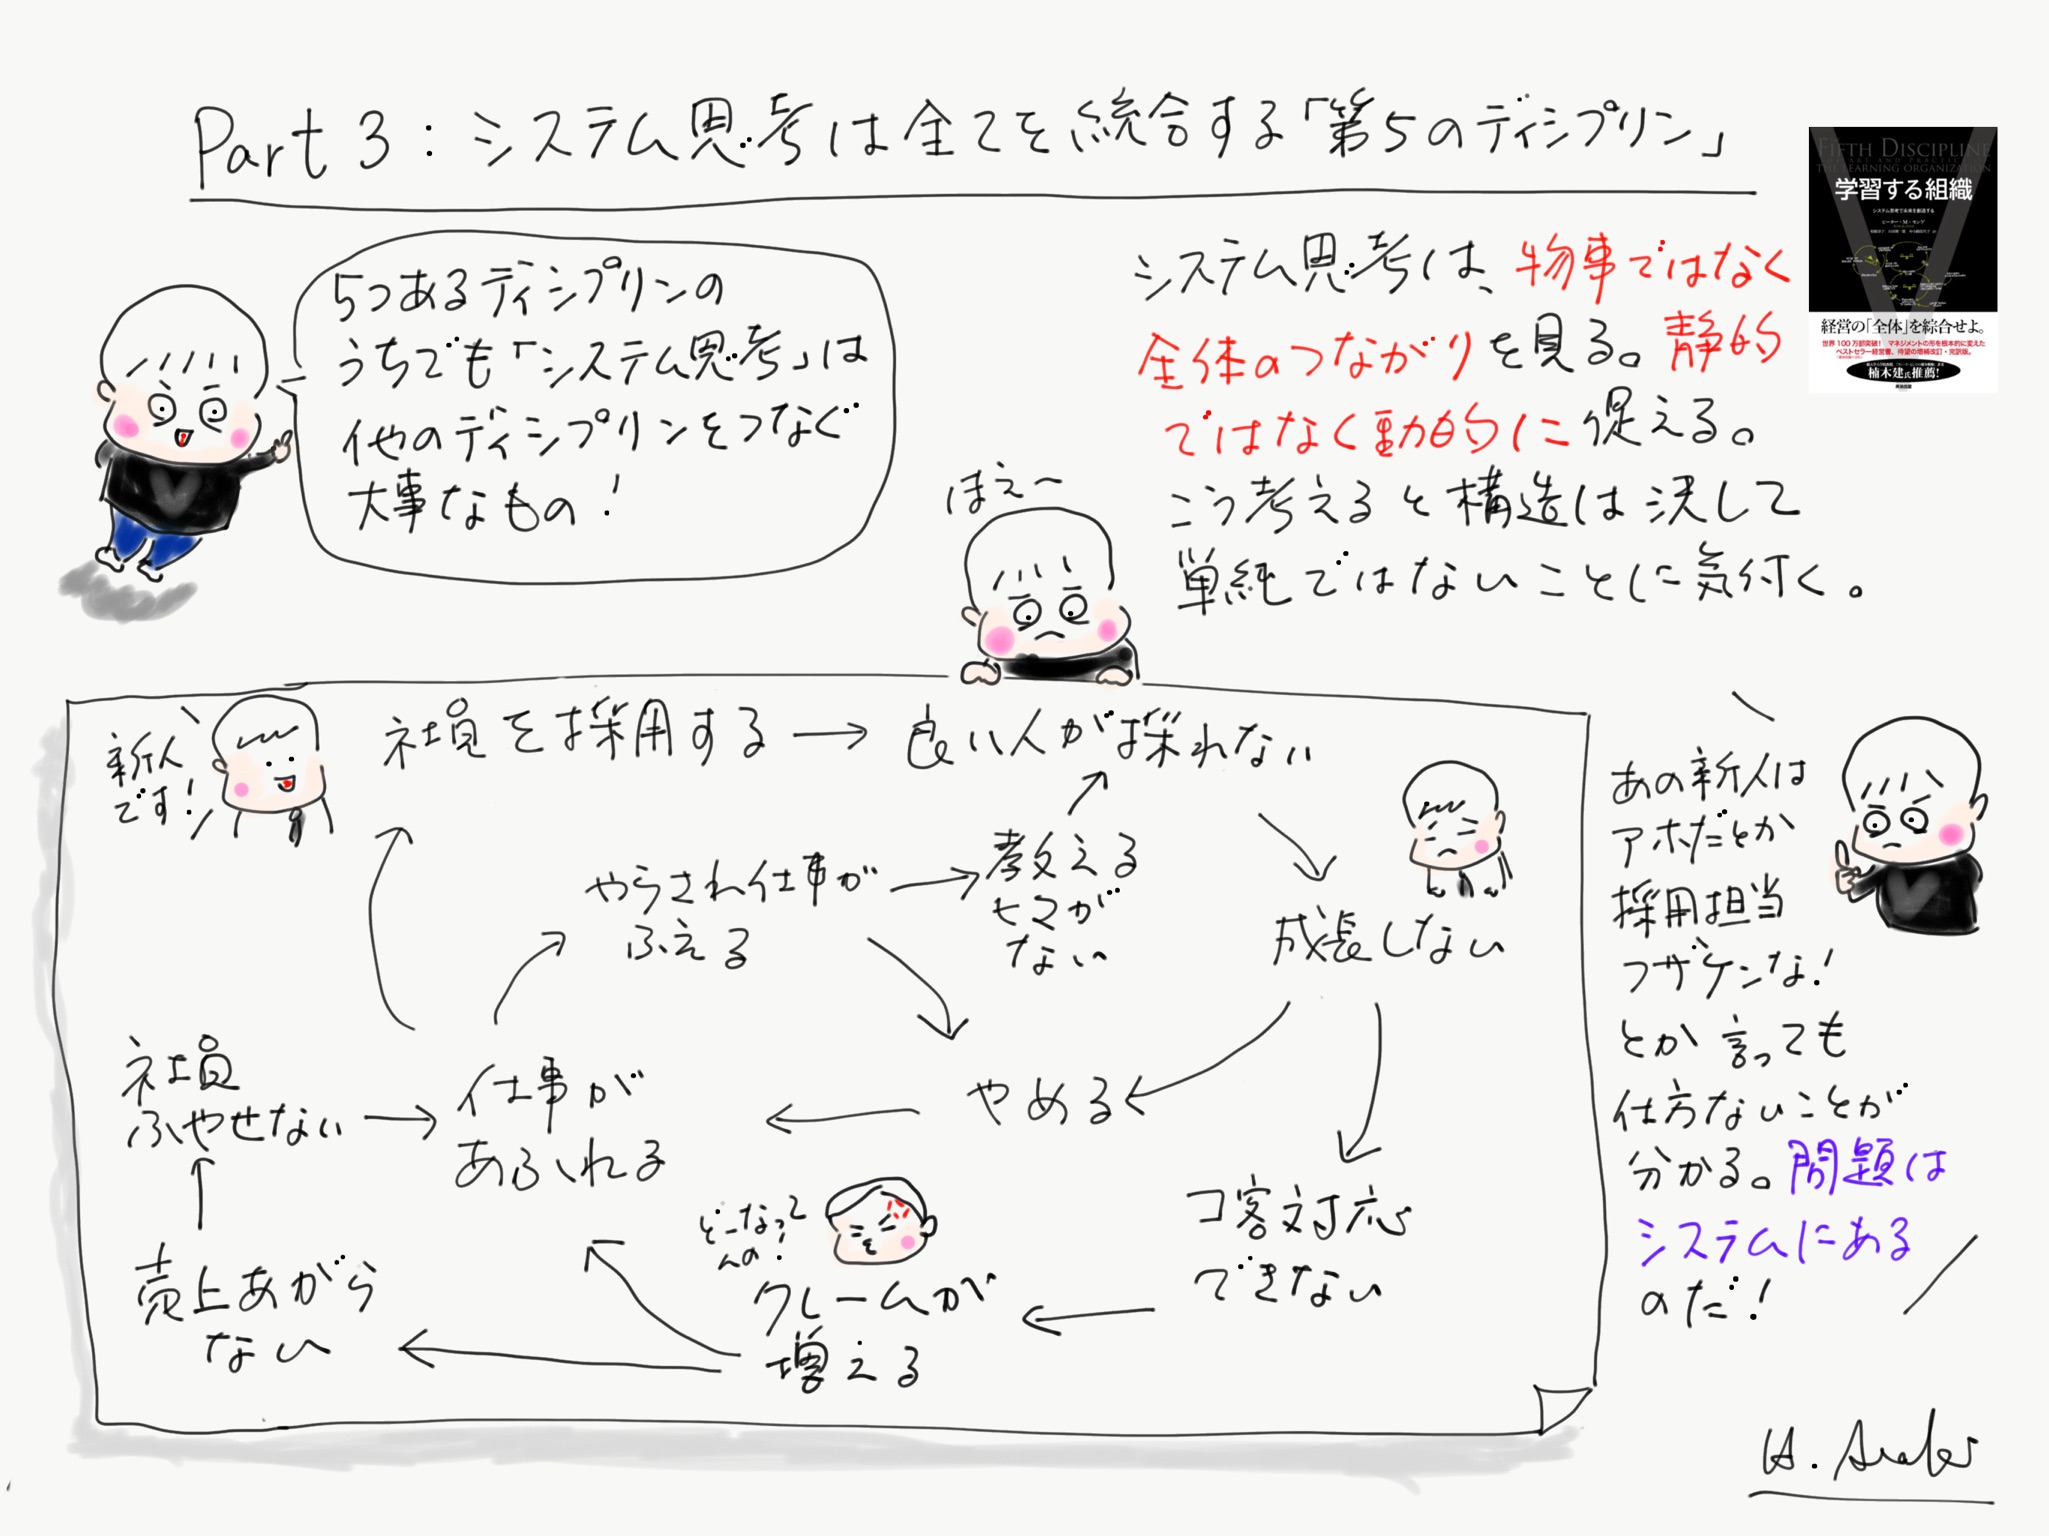 Part 3：システム思考は全てを統合する「第5のディシプリン」
FIFTH DISCIPLINE
THE LEARNING ORGANIZATION
学習する組織
システム思考で未来を創造する
ピーター・M・センゲ
経営の「全体」を綜合せよ。
世界100万部突破！ マネジメントの形を根本的に変えた
ベストセラー経営書、待望の増補改訂・完訳版。
楠木建氏推薦！
5つあるディシプリンの
うちでも「システム思考」は
他のディシプリンをつなぐ
大事なもの！
システム思考は、物事ではなく
全体のつながりを見る。静的
ではなく動的に促える。
こう考えると構造は決して
単純ではないことに気付く。
ほえ〜
新人
です！
社員を採用する → 良い人が採れない
やらされ仕事が
ふえる
→ 教える
ヒマが
ない
成長しない
社員
ふやせない
→ 仕事が
あふれる
← やめる
コ客対応
できない
どーなって
んの！
クレームが
増える
売上あがら
ない
あの新人は
アホだとか
採用担当
フザケンな！
とか言っても
仕方ないことが
分かる。問題は
システムにある
のだ！